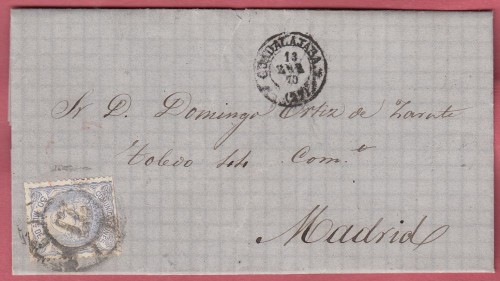 GUADALAJARA
13
ENE
70
(27)
Sr D. Domingo Ortiz de Zarate
Toledo 44 Com.º
Madrid